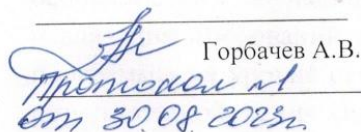 Горбачев А.В.
Протокол №1
от 30.08.2023г.